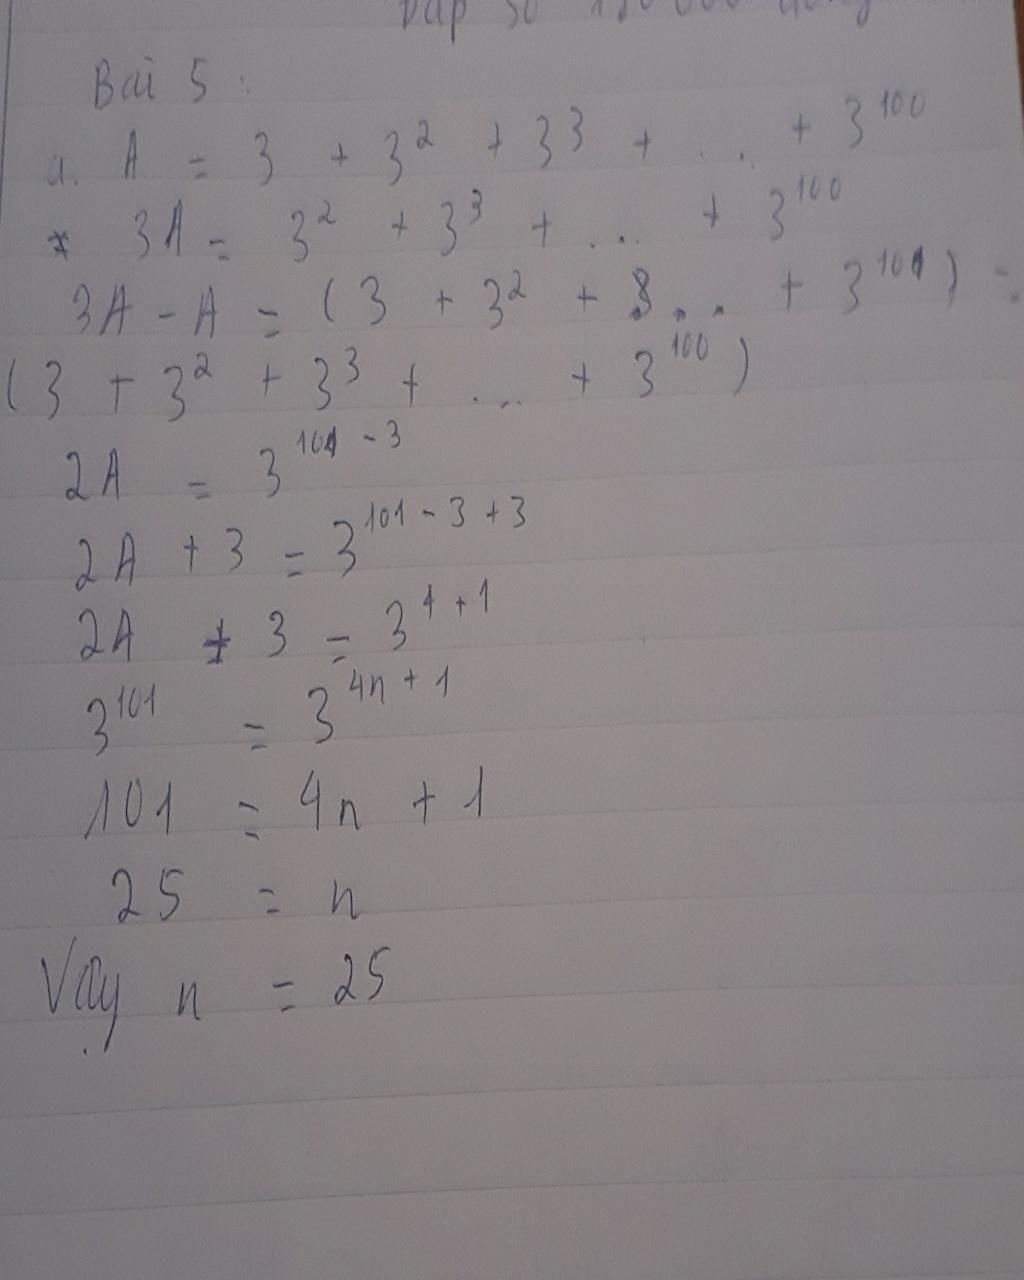 Bài 5 :
a. A = 3 + 3² + 3³ + ... + 3¹⁰⁰
* 3A = 3² + 3³ + ... + 3¹⁰⁰
3A - A = (3 + 3² + 3... + 3¹⁰¹) -
(3 + 3² + 3³ + ... + 3¹⁰⁰)
2A = 3¹⁰¹ ⁻ ³
2A + 3 = 3¹⁰¹ ⁻ ³ ⁺ ³
2A + 3 = 3⁴ ⁺ ¹
3¹⁰¹ = 3⁴ⁿ ⁺ ¹
101 = 4n + 1
25 = n
Vậy n = 25